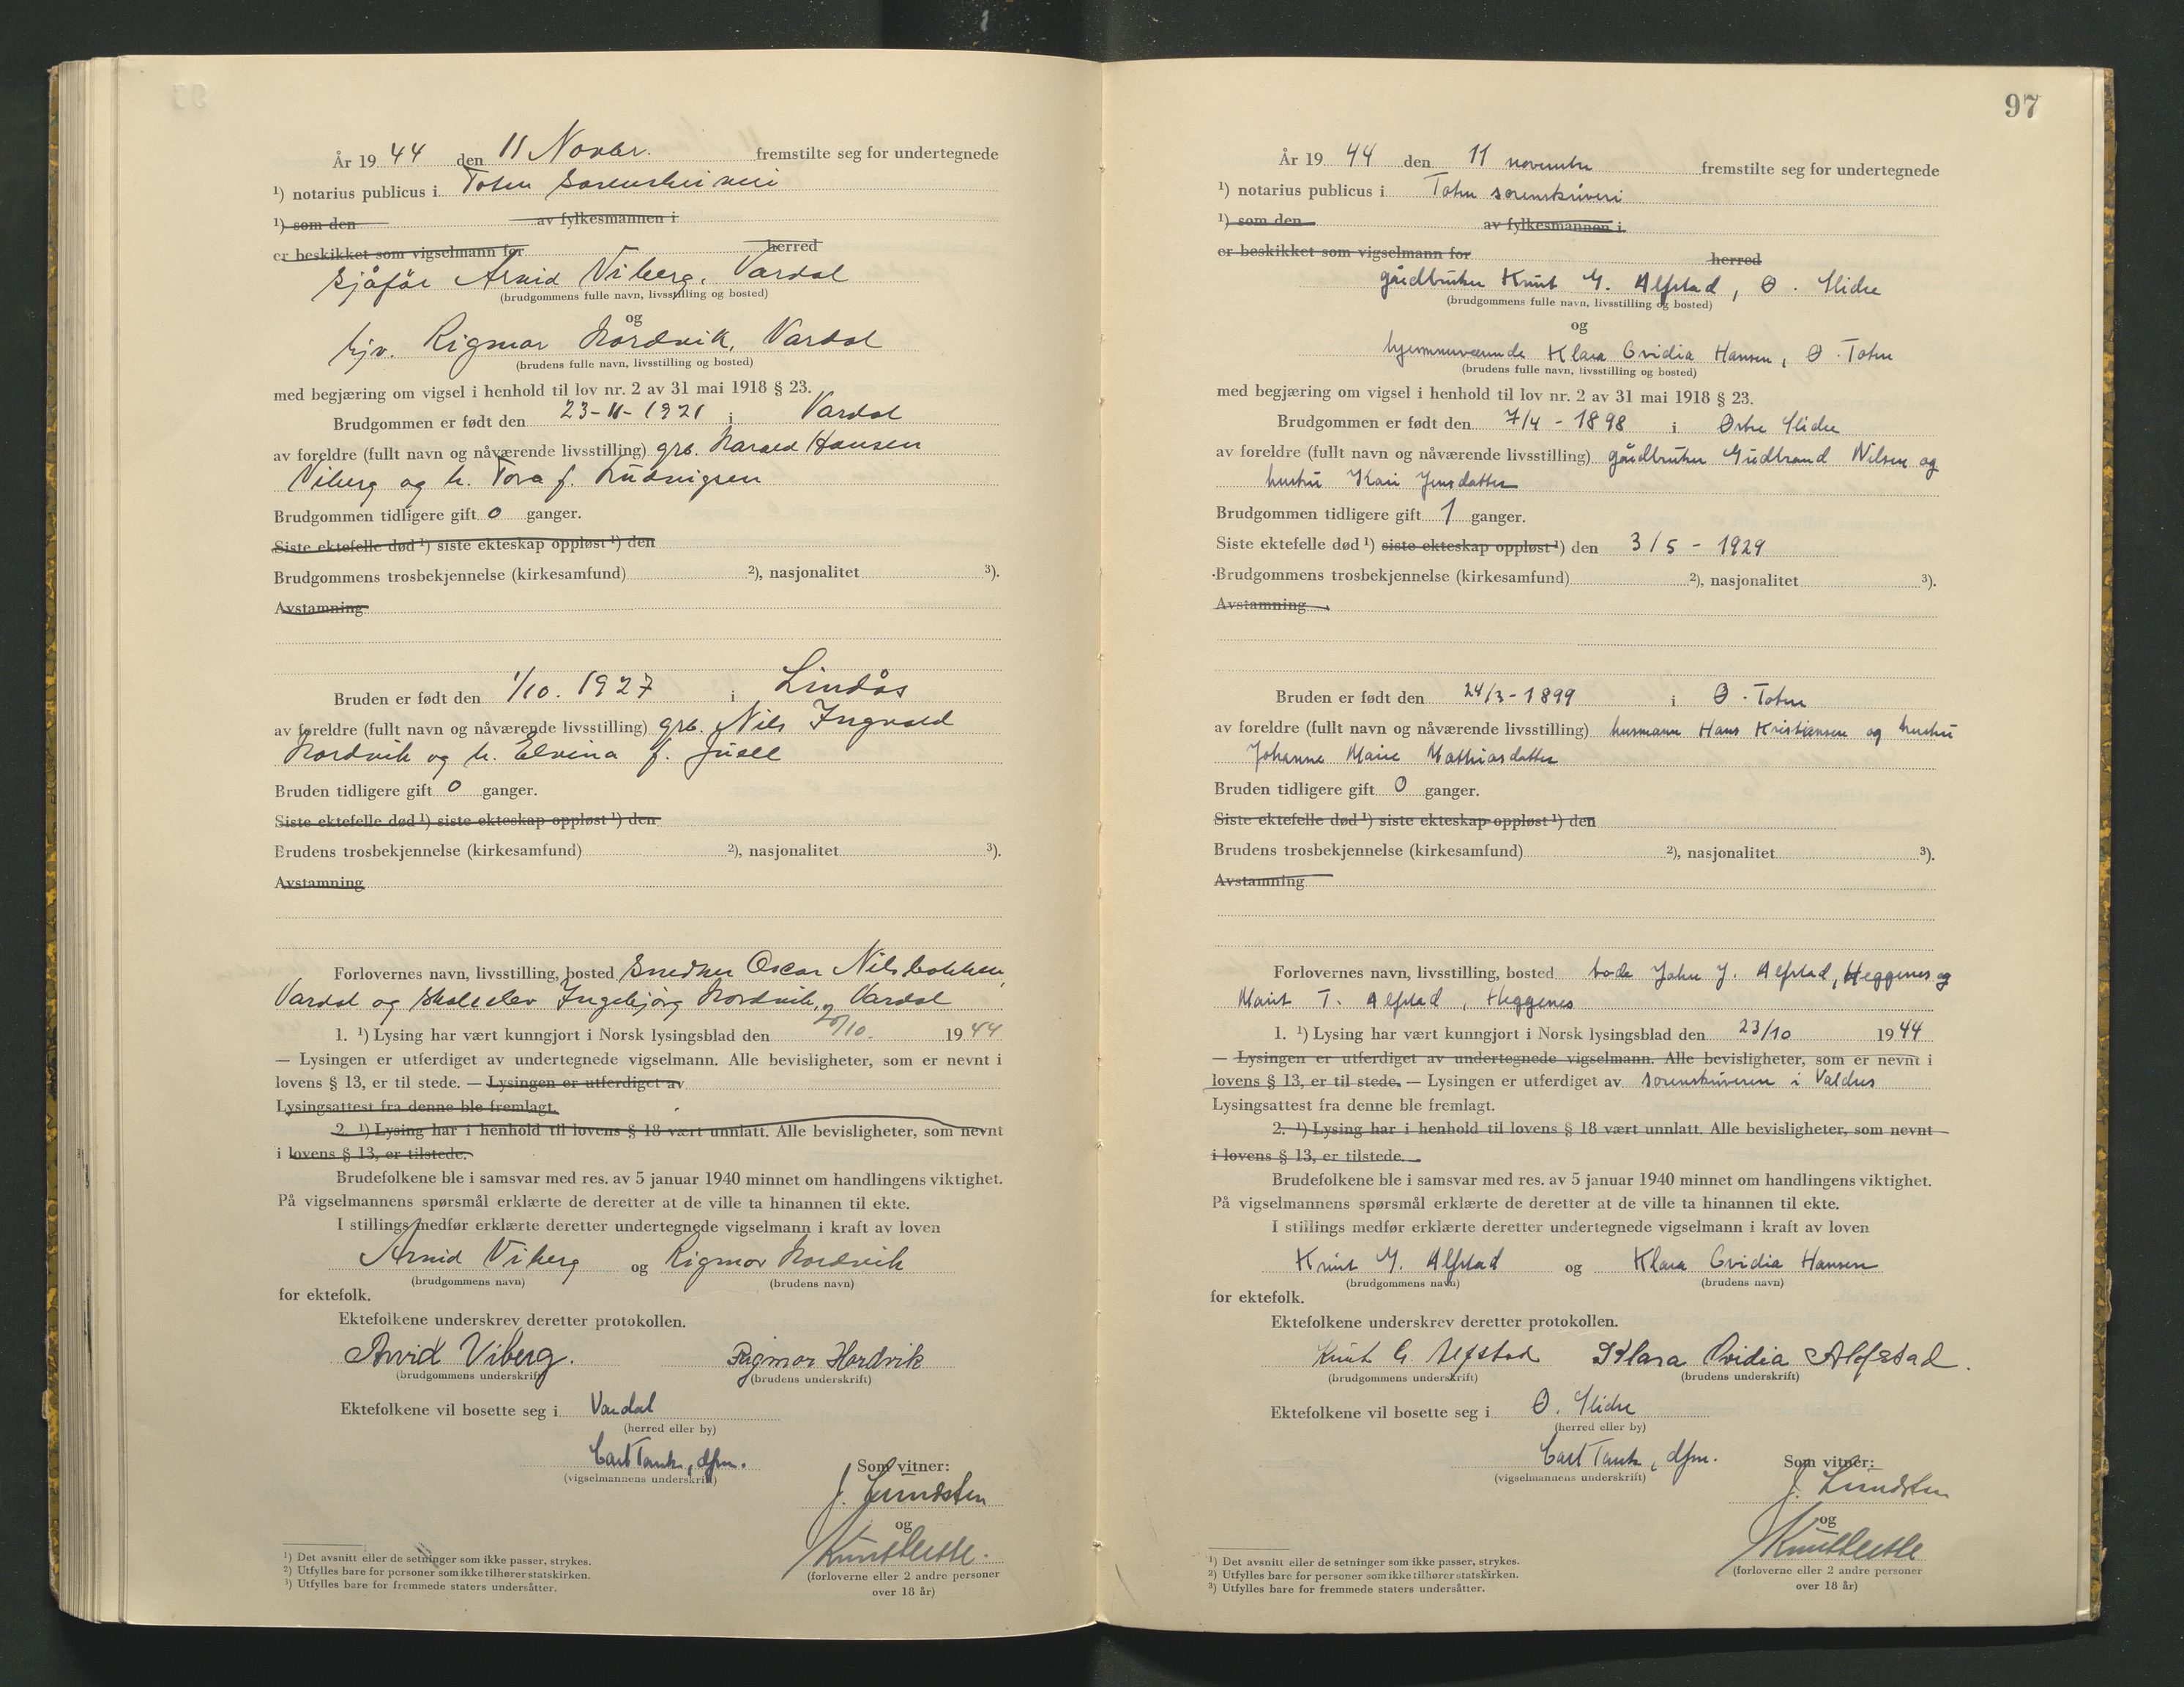 År 19 44 den 11 Novbr. fremstilte seg for undertegnede
¹) notarius publicus i Toten sorenskriveri
¹) som den av fylkesmannen i
er beskikket som vigselmann for herred
sjåfør Arvid Viberg, Vardal
(brudgommens fulle navn, livsstilling og bosted)
og
hjv. Rigmor Nordvik, Vardal
(brudens fulle navn, livsstilling og bosted)
med begjæring om vigsel i henhold til lov nr. 2 av 31 mai 1918 § 23.
Brudgommen er født den 23-11-1921 i Vardal
av foreldre (fullt navn og nåværende livsstilling) grb. Harald Hansen
Viberg og h. Tora f. Ludvigsen
Brudgommen tidligere gift 0 ganger.
Siste ektefelle død ¹) siste ekteskap oppløst ¹) den
Brudgommens trosbekjennelse (kirkesamfund) ²), nasjonalitet ³).
Avstamning
Bruden er født den 1/10. 1927 i Lindås
av foreldre (fullt navn og nåværende livsstilling) grb. Nils Ingvald
Nordvik og h. Elvina f. Juell
Bruden tidligere gift 0 ganger.
Siste ektefelle død ¹) siste ekteskap oppløst ¹) den
Brudens trosbekjennelse (kirkesamfund) ²), nasjonalitet ³).
Avstamning
Forlovernes navn, livsstilling, bosted Snedker Oscar Nilsbakken,
Vardal og skoleelev Ingebjørg Nordvik, Vardal
1. ¹) Lysing har vært kunngjort i Norsk lysingsblad den 20/10. 19 44
— Lysingen er utferdiget av undertegnede vigselmann. Alle bevisligheter, som er nevnt i
lovens § 13, er til stede. — Lysingen er utferdiget av
Lysingsattest fra denne ble fremlagt.
2. ¹) Lysing har i henhold til lovens § 18 vært unnlatt. Alle bevisligheter, som nevnt
i lovens § 13, er tilstede.
Brudefolkene ble i samsvar med res. av 5 januar 1940 minnet om handlingens viktighet.
På vigselmannens spørsmål erklærte de deretter at de ville ta hinannen til ekte.
I stillings medfør erklærte deretter undertegnede vigselmann i kraft av loven
Arvid Viberg og Rigmor Nordvik
(brudgommens navn) (brudens navn)
for ektefolk.
Ektefolkene underskrev deretter protokollen.
Arvid Viberg. Rigmor Nordvik
(brudgommens underskrift) (brudens underskrift)
Ektefolkene vil bosette seg i Vardal
(herred eller by)
Carl Tank, dfm.
(vigselmannens underskrift)
Som vitner:
J. Lundsten
og
(forloverne eller 2 andre personer
over 18 år)
¹) Det avsnitt eller de setninger som ikke passer, strykes.
²) Utfylles bare for personer som ikke tilhører statskirken.
³) Utfylles bare for fremmede staters undersåtter.
97
År 19 44 den 11 november fremstilte seg for undertegnede
¹) notarius publicus i Toten sorenskriveri
¹) som den av fylkesmannen i
er beskikket som vigselmann for herred
gårdbruker Knut G. Alfstad, Ø. Slidre
(brudgommens fulle navn, livsstilling og bosted)
og
hjemmeværende Klara Ovidia Hansen, Ø. Toten
(brudens fulle navn, livsstilling og bosted)
med begjæring om vigsel i henhold til lov nr. 2 av 31 mai 1918 § 23.
Brudgommen er født den 7/4 - 1898 i Østre Slidre
av foreldre (fullt navn og nåværende livsstilling) gårdbruker Gudbrand Nilsen og
hustru Kari Jensdatter
Brudgommen tidligere gift 1 ganger.
Siste ektefelle død ¹) siste ekteskap oppløst ¹) den 3/5 - 1929
Brudgommens trosbekjennelse (kirkesamfund) ²), nasjonalitet ³).
Avstamning
Bruden er født den 24/3 - 1899 i Ø. Toten
av foreldre (fullt navn og nåværende livsstilling) husmann Hans Kristiansen og hustru
Johanne Marie Mathiasdatter
Bruden tidligere gift 0 ganger.
Siste ektefelle død ¹) siste ekteskap oppløst ¹) den
Brudens trosbekjennelse (kirkesamfund) ²), nasjonalitet ³).
Avstamning
Forlovernes navn, livsstilling, bosted John J. Alfstad, Heggenes og
Marit T. Alfstad, Heggenes
1. ¹) Lysing har vært kunngjort i Norsk lysingsblad den 23/10 19 44
— Lysingen er utferdiget av undertegnede vigselmann. Alle bevisligheter, som er nevnt i
lovens § 13, er til stede. — Lysingen er utferdiget av sorenskriveren i Valdres
Lysingsattest fra denne ble fremlagt.
2. ¹) Lysing har i henhold til lovens § 18 vært unnlatt. Alle bevisligheter, som nevnt
i lovens § 13, er tilstede.
Brudefolkene ble i samsvar med res. av 5 januar 1940 minnet om handlingens viktighet.
På vigselmannens spørsmål erklærte de deretter at de ville ta hinannen til ekte.
I stillings medfør erklærte deretter undertegnede vigselmann i kraft av loven
Knut G. Alfstad og Klara Ovidia Hansen
(brudgommens navn) (brudens navn)
for ektefolk.
Ektefolkene underskrev deretter protokollen.
Knut G. Alfstad Klara Ovidia Alfstad.
(brudgommens underskrift) (brudens underskrift)
Ektefolkene vil bosette seg i Ø. Slidre
(herred eller by)
Carl Tank, dfm.
(vigselmannens underskrift)
Som vitner:
J. Lundsten
og
(forloverne eller 2 andre personer
over 18 år)
¹) Det avsnitt eller de setninger som ikke passer, strykes.
²) Utfylles bare for personer som ikke tilhører statskirken.
³) Utfylles bare for fremmede staters undersåtter.